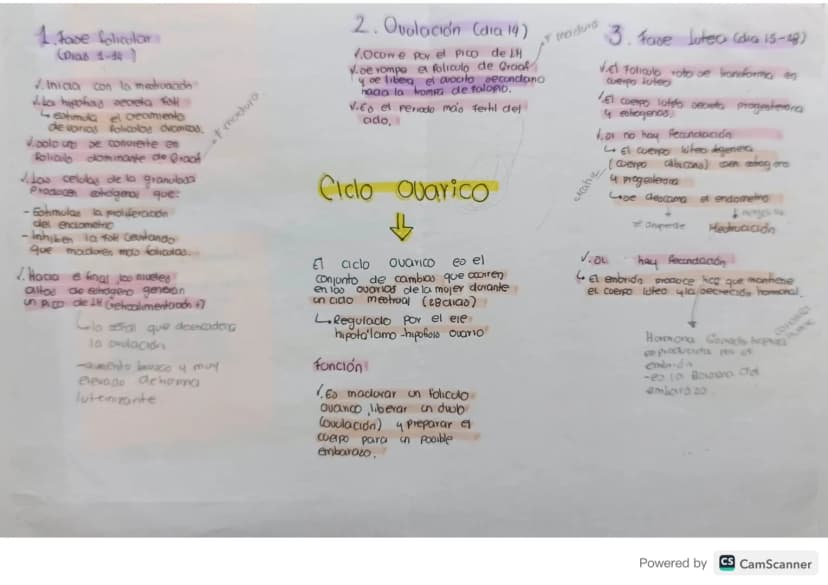 1. Fase folicular
(Dias 1-14)
✓. Inicia con la mestruación
✓. La hipofisis secreta FSH
↳ estimula el crecimiento
de varios foliculos ovaricos.
✓. Solo uno se convierte en
foliculo dominante de Graaf
+ maduro
✓. Las celulas de la granulosa
producen estrógenos que:
- Estimulas la proliferación
del endometrio
- Inhiben la FSH (evitando
que maduren mas foliculos.
✓. Hacia el final los niveles
altos de estrógeno generan
un pico de LH (retroalimentación +)
↳ la señal que desencadena
la ovulación
- aumento brusco y muy
elevado de homna
luteinizante
2. Ovulación (dia 14)
✓. Ocurre por el Pico de LH
+ maduro
✓. se rompe el foliculo de Graaf
y se libera el ovocito secundario
hacia la trompa de falopio.
✓. Es el periodo más fertil del
ciclo.
Ciclo Ovarico
El ciclo ovarico es el
conjunto de cambios que ocurren
en los ovarios de la mujer durante
un ciclo mestrual (28 dias)
↳ Regulado por el eje
hipotálamo-hipofisis ovario
Función
✓. Es madurar un foliculo
ovarico, liberar un óvulo
(ovulación) y preparar el
cuerpo para un posible
embarazo.
3. Fase lutea (dia 15-28)
✓. el foliculo roto se transforma en
cuerpo luteo
✓. El cuerpo luteo secreta progesterona
y estrogenos.
✓. si no hay fecundación
↳ El cuerpo luteo degenera
(cuerpo albicans)
y progesterona
cicatriz
↳ se descama el endometrio
Mestruación
✓. Si hay fecundación
↳ El embrión produce hCG que mantiene
el cuerpo luteo y la secreción hormonal.
Hormona
es producida por el
embrión
- es la
embarazo.
Powered by CS CamScanner